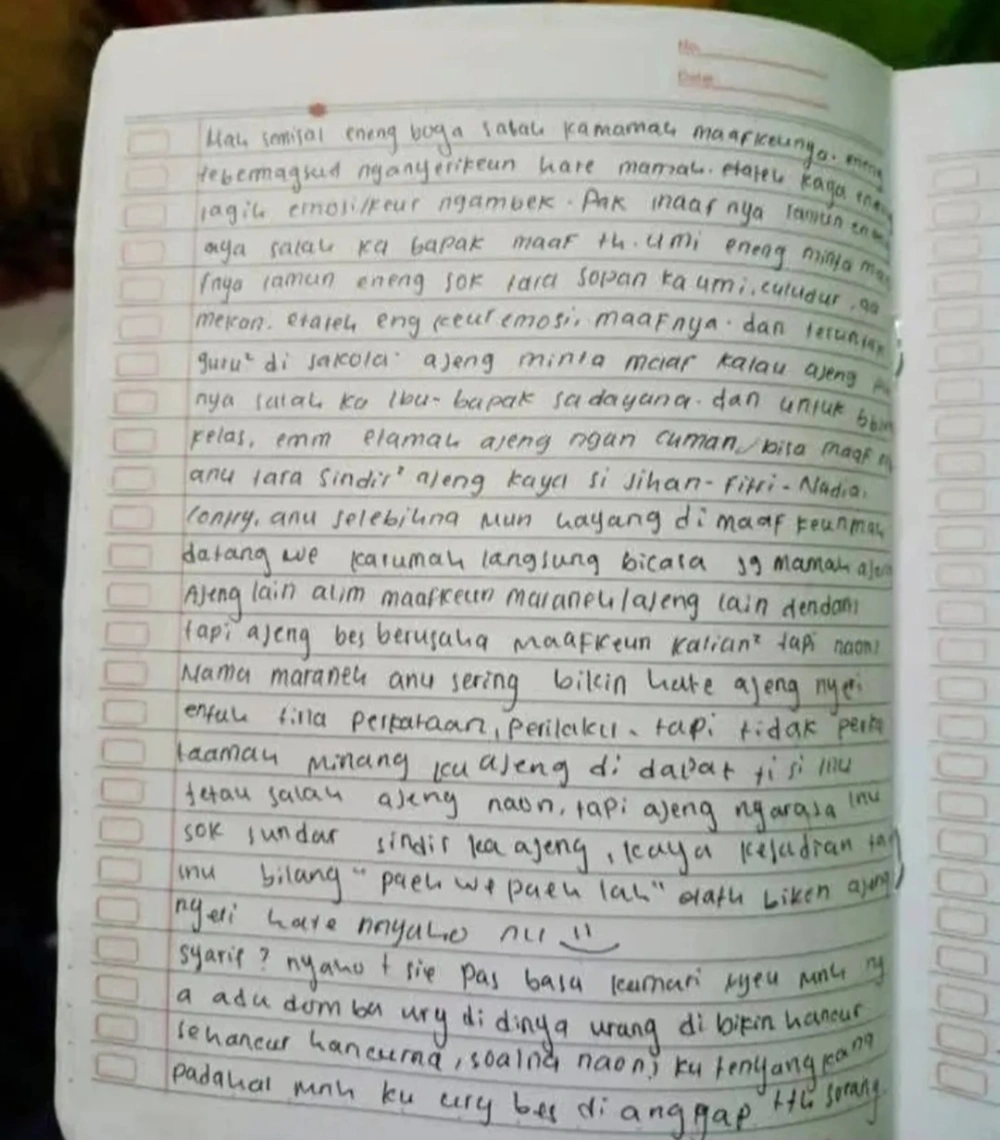 No.
Date.
Mah semisal eneng boga salah kamamah maafkeunya. eneng
tebermagsud nganyerikeun hate mamah. etateh kaga ene
lagih emosi/keur ngambek. Pak maaf nya lamun ene
aya salah ka bapak maaf th. umi eneng minta ma
fnya lamun eneng sok tara sopan ka umi. culudur
mekon. etateh eng keur emosi, maafnya. dan teruntuk
guru² di sakola. ajeng minta maaf kalau ajeng pu
nya salah ka Ibu-bapak sadayana. dan untuk
kelas, emm etamah ajeng ngan cuman bisa maaf
anu tara sindir² ajeng kaya si Jihan-Fitri-Nadia.
anu selebihna mun hayang di maaf keunmah
datang we karumah langsung bicara sg mamah ajen
Ajeng lain alim maafkeun maraneh/ajeng lain dendam
tapi ajeng bes berusaha maafkeun kalian² tapi naon?
Nama maraneh anu sering bikin hate ajeng nyeri
entah tina perkataan, perilaku. tapi tidak perka
taamah minang ku ajeng di dapat ti si inu
tetau salah ajeng naon, tapi ajeng ngarasa inu
sok sundar sindir ka ajeng, kaya kejadian
inu bilang "paeh we paeh lah" biken ajeng
nyeri hate nnyaho nu
syarif? nyaho t sie pas basa kamari nyeu mnh ng
a adu domba ury di dinya urang di bikin hancur
sehancur hancurna, soalna naon? ku tenyangkang
padahal mnh ku ury bes di anggap tth sorang.